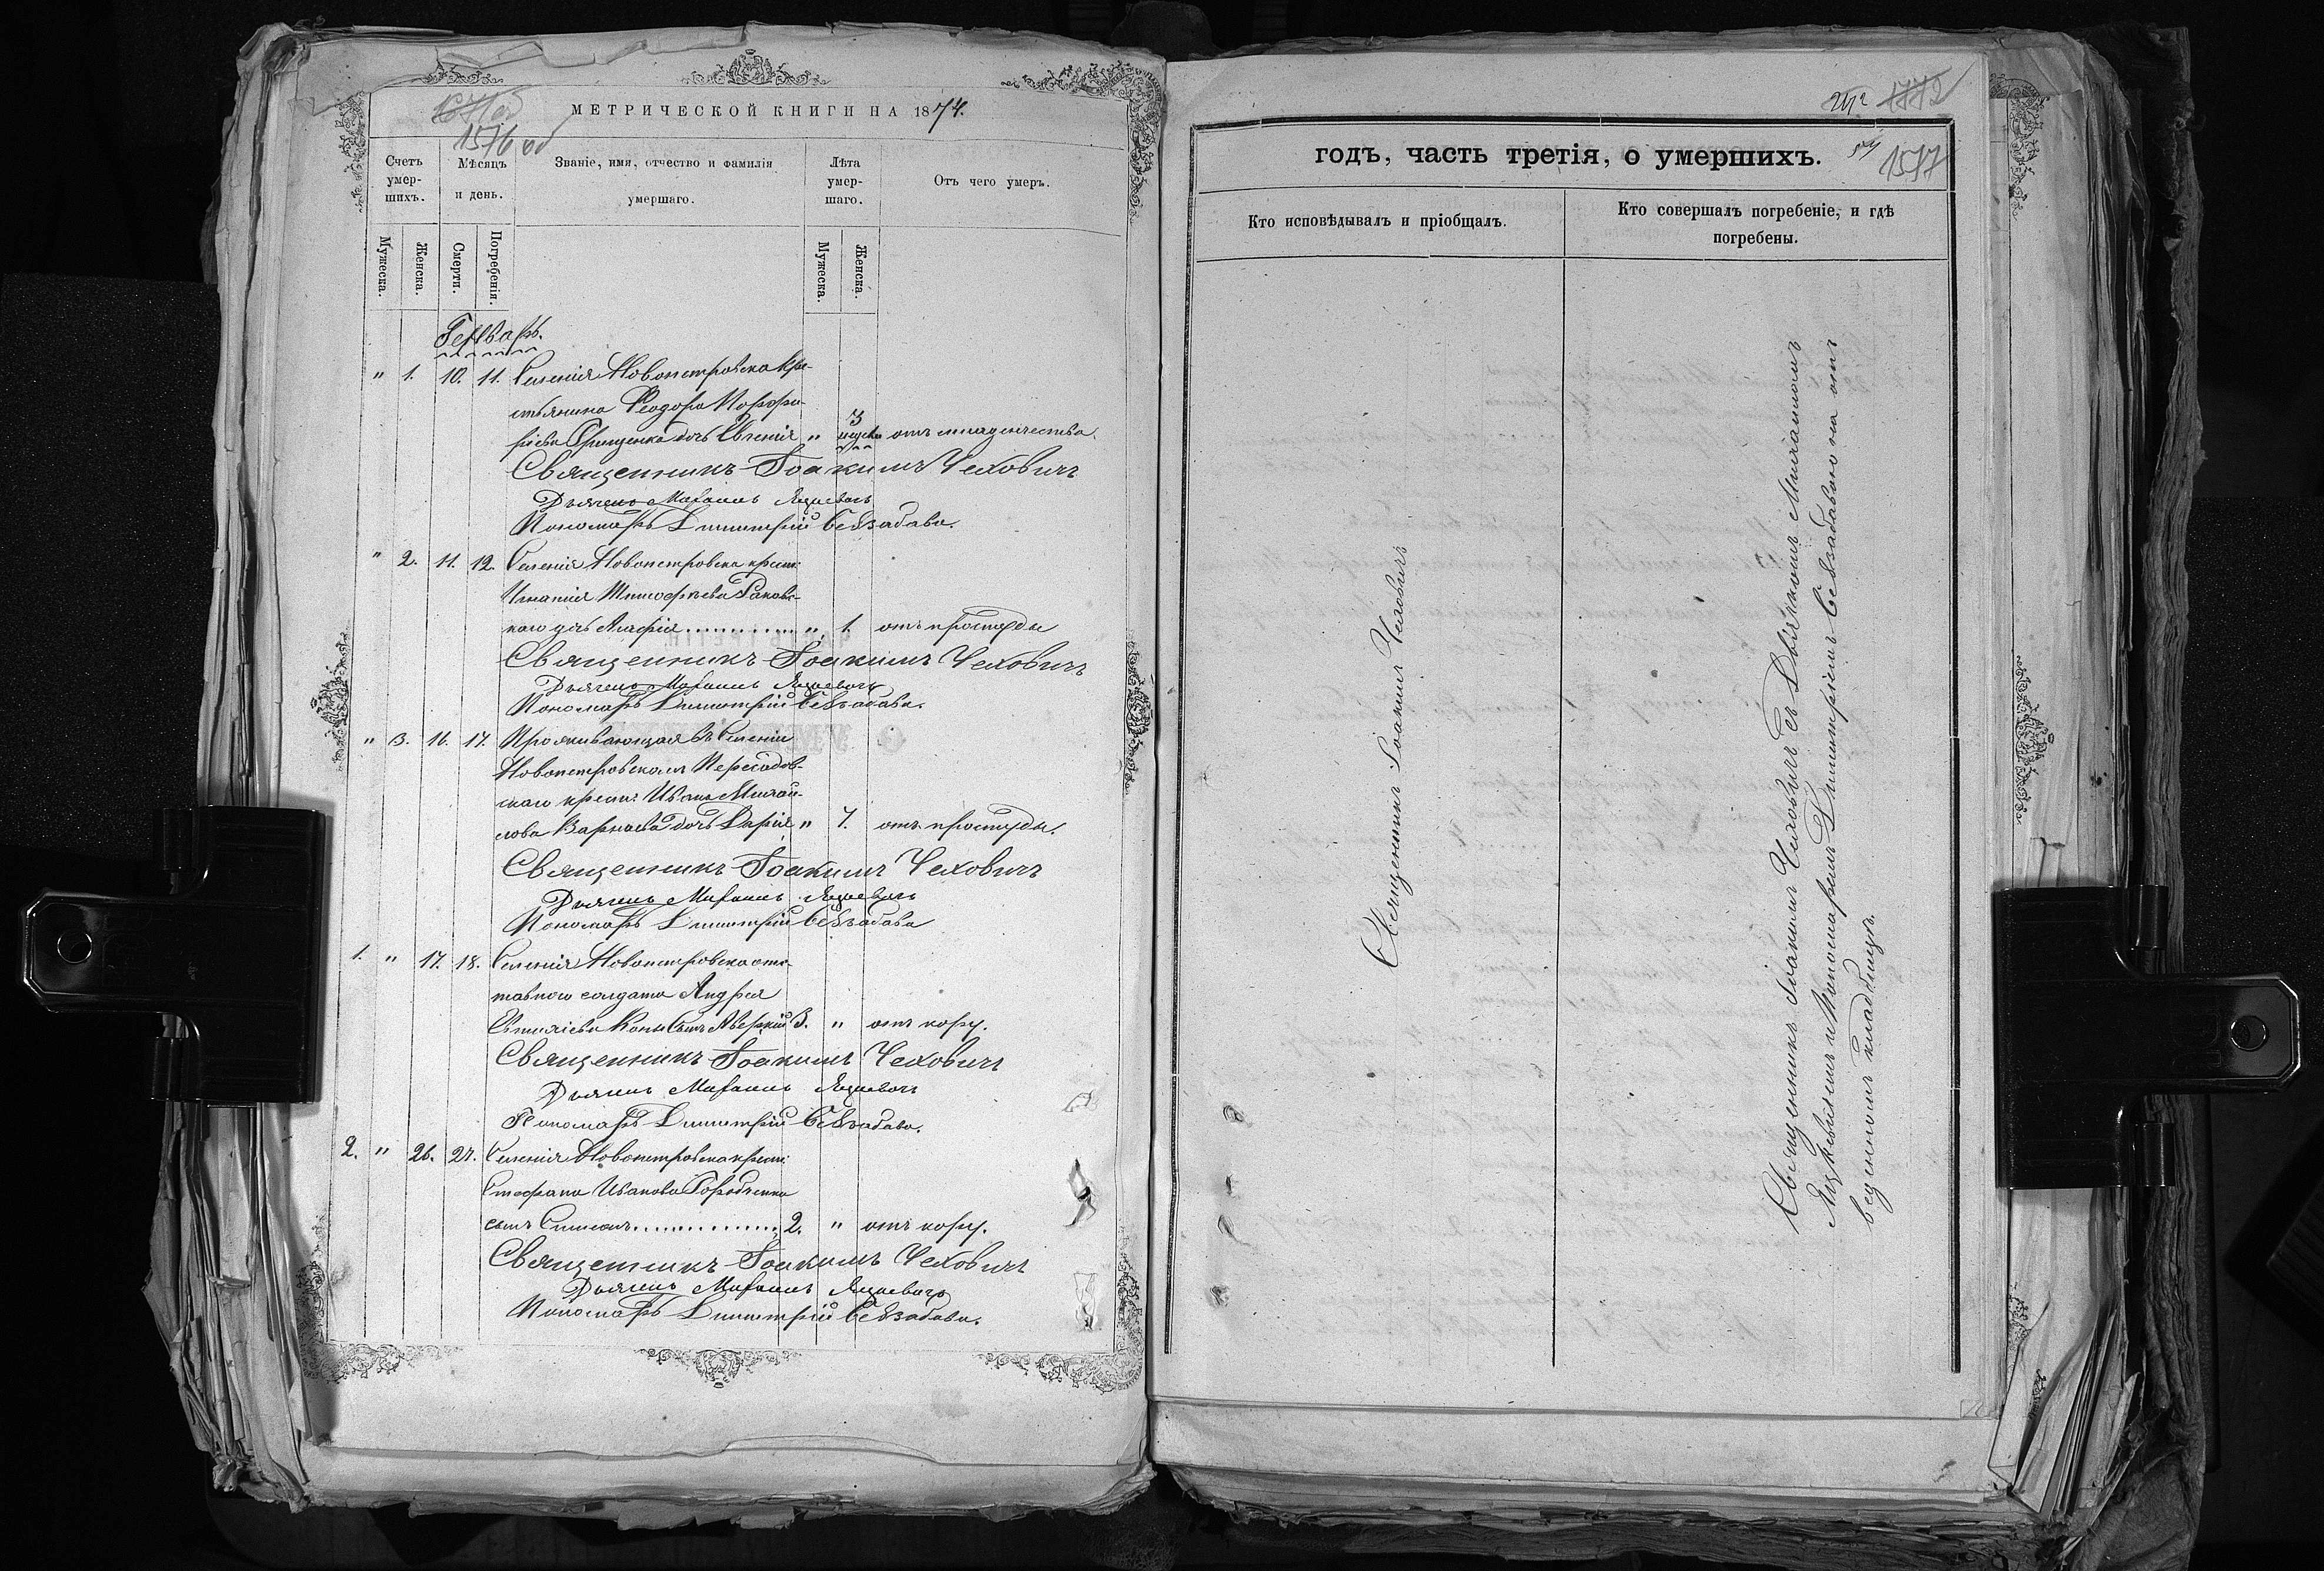 МЕТРИЧЕСКОЙ КНИГИ НА 1874.
1576 об
Счетъ умер-шихъ.
Мѣсяцъ и день.
Званіе, имя, отчество и фамилія умершаго.
Лѣта умер-шаго.
Отъ чего умеръ.
Мужеска.
Женска.
Смерти.
Погребенія.
Мужеска.
Женска.
Генварь.
" 1. 10. 11. Селенія Новопетровска кре-
стьянина Ѳеодора Порфи-
ріева Грищенка дочь Евгенія " 3 недѣли отъ младенчества.
Священникъ Іоакимъ Чехович
Дьячекъ Михаилъ
Пономарь Димитрій Беззабава.
" 2. 11. 12. Селенія Новопетровска крест:
Игнатія Тимофѣева Раковс-
каго дочь Агафія " 1. отъ простуды
Священникъ Іоакимъ Чеховичъ
Дьячекъ Михаилъ
Пономарь Димитрій Беззабава.
" 3. 16. 17. Проживающая въ селеніи
Новопетровскомъ Пересадов-
скаго крест: Ивана Михай-
лова Варнаева дочь Дарія " 7. отъ простуды.
Священникъ Іоакимъ Чеховичъ
Дьячекъ Михаилъ
Пономарь Димитрій Беззабава
1. " 17. 18. Селенія Новопетровска отс-
тавного солдата Андрея
сынъ Аверкій 3. " отъ кору.
Священникъ Іоакимъ Чеховичъ
Дьячекъ Михаилъ
Пономарь Димитрій Беззабава.
2. " 26. 27. Селенія Новопетровска крест:
Стефана Иванова Городченка
сынъ Симеонъ 2. " отъ кору.
Священникъ Іоакимъ Чеховичъ
Дьячекъ Михаилъ
Пономарь Димитрій Беззабава.
1577
годъ, часть третія, о умершихъ.
Кто исповѣдывалъ и пріобщалъ.
Кто совершалъ погребеніе, и гдѣ погребены.
Священникъ Іоакимъ Чеховичъ
Священникъ Іоакимъ Чеховичъ съ Дьячкомъ Михаиломъ
и Пономаремъ Димитріемъ Беззабавою на от-
веденномъ кладбищѣ.